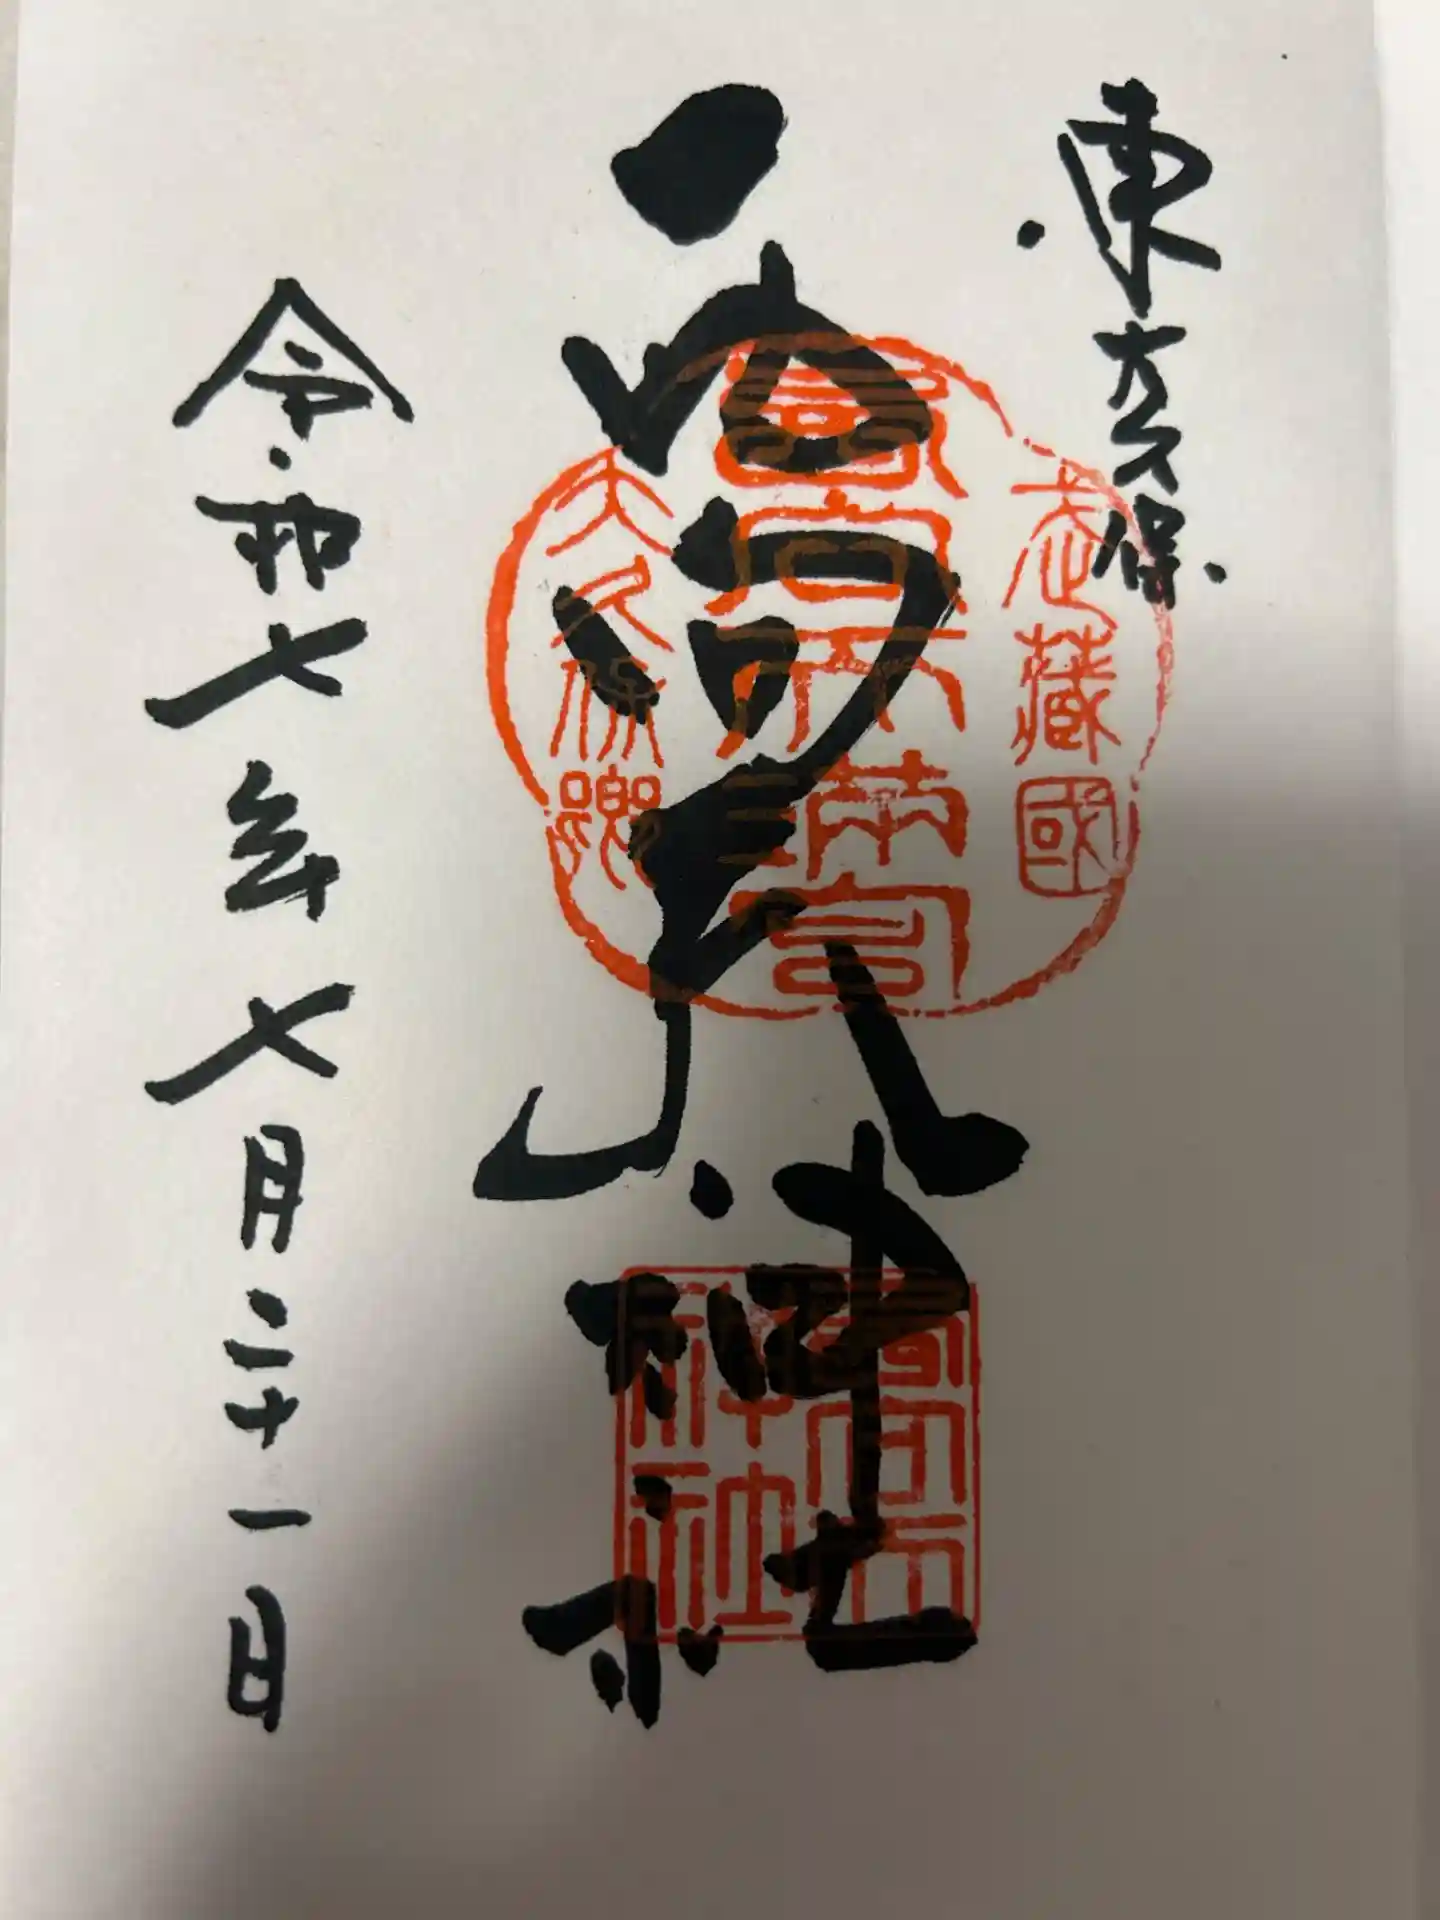 東大久保
西向天神社
令和七年七月二十一日
武藏國
西向天満宮
大久保郷
西向天
神社